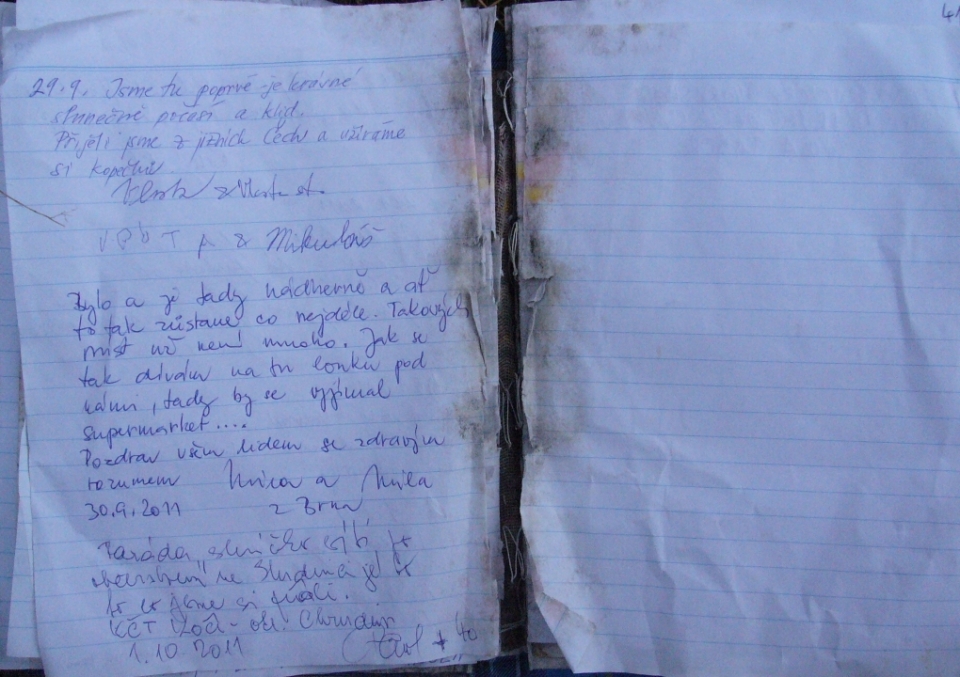 29.9. Jsme tu poprvé - je krásné
slunečné počasí a klid.
Přijeli jsme z jižních Čech a užíváme
si kopečků
a Mikuláš
Bylo a je tady nádherně a ať
to tak zůstane co nejdéle. Takových
míst už není mnoho. Jak se
tak dívám na tu louku pod
námi, tady by se vyjímal
supermarket....
Pozdrav všem lidem se zdravým
rozumem a Míla
30.9.2011 z Brna
Paráda, sluníčko
je
jsme si
KČT - ok. Chrudim
1.10.2011
41